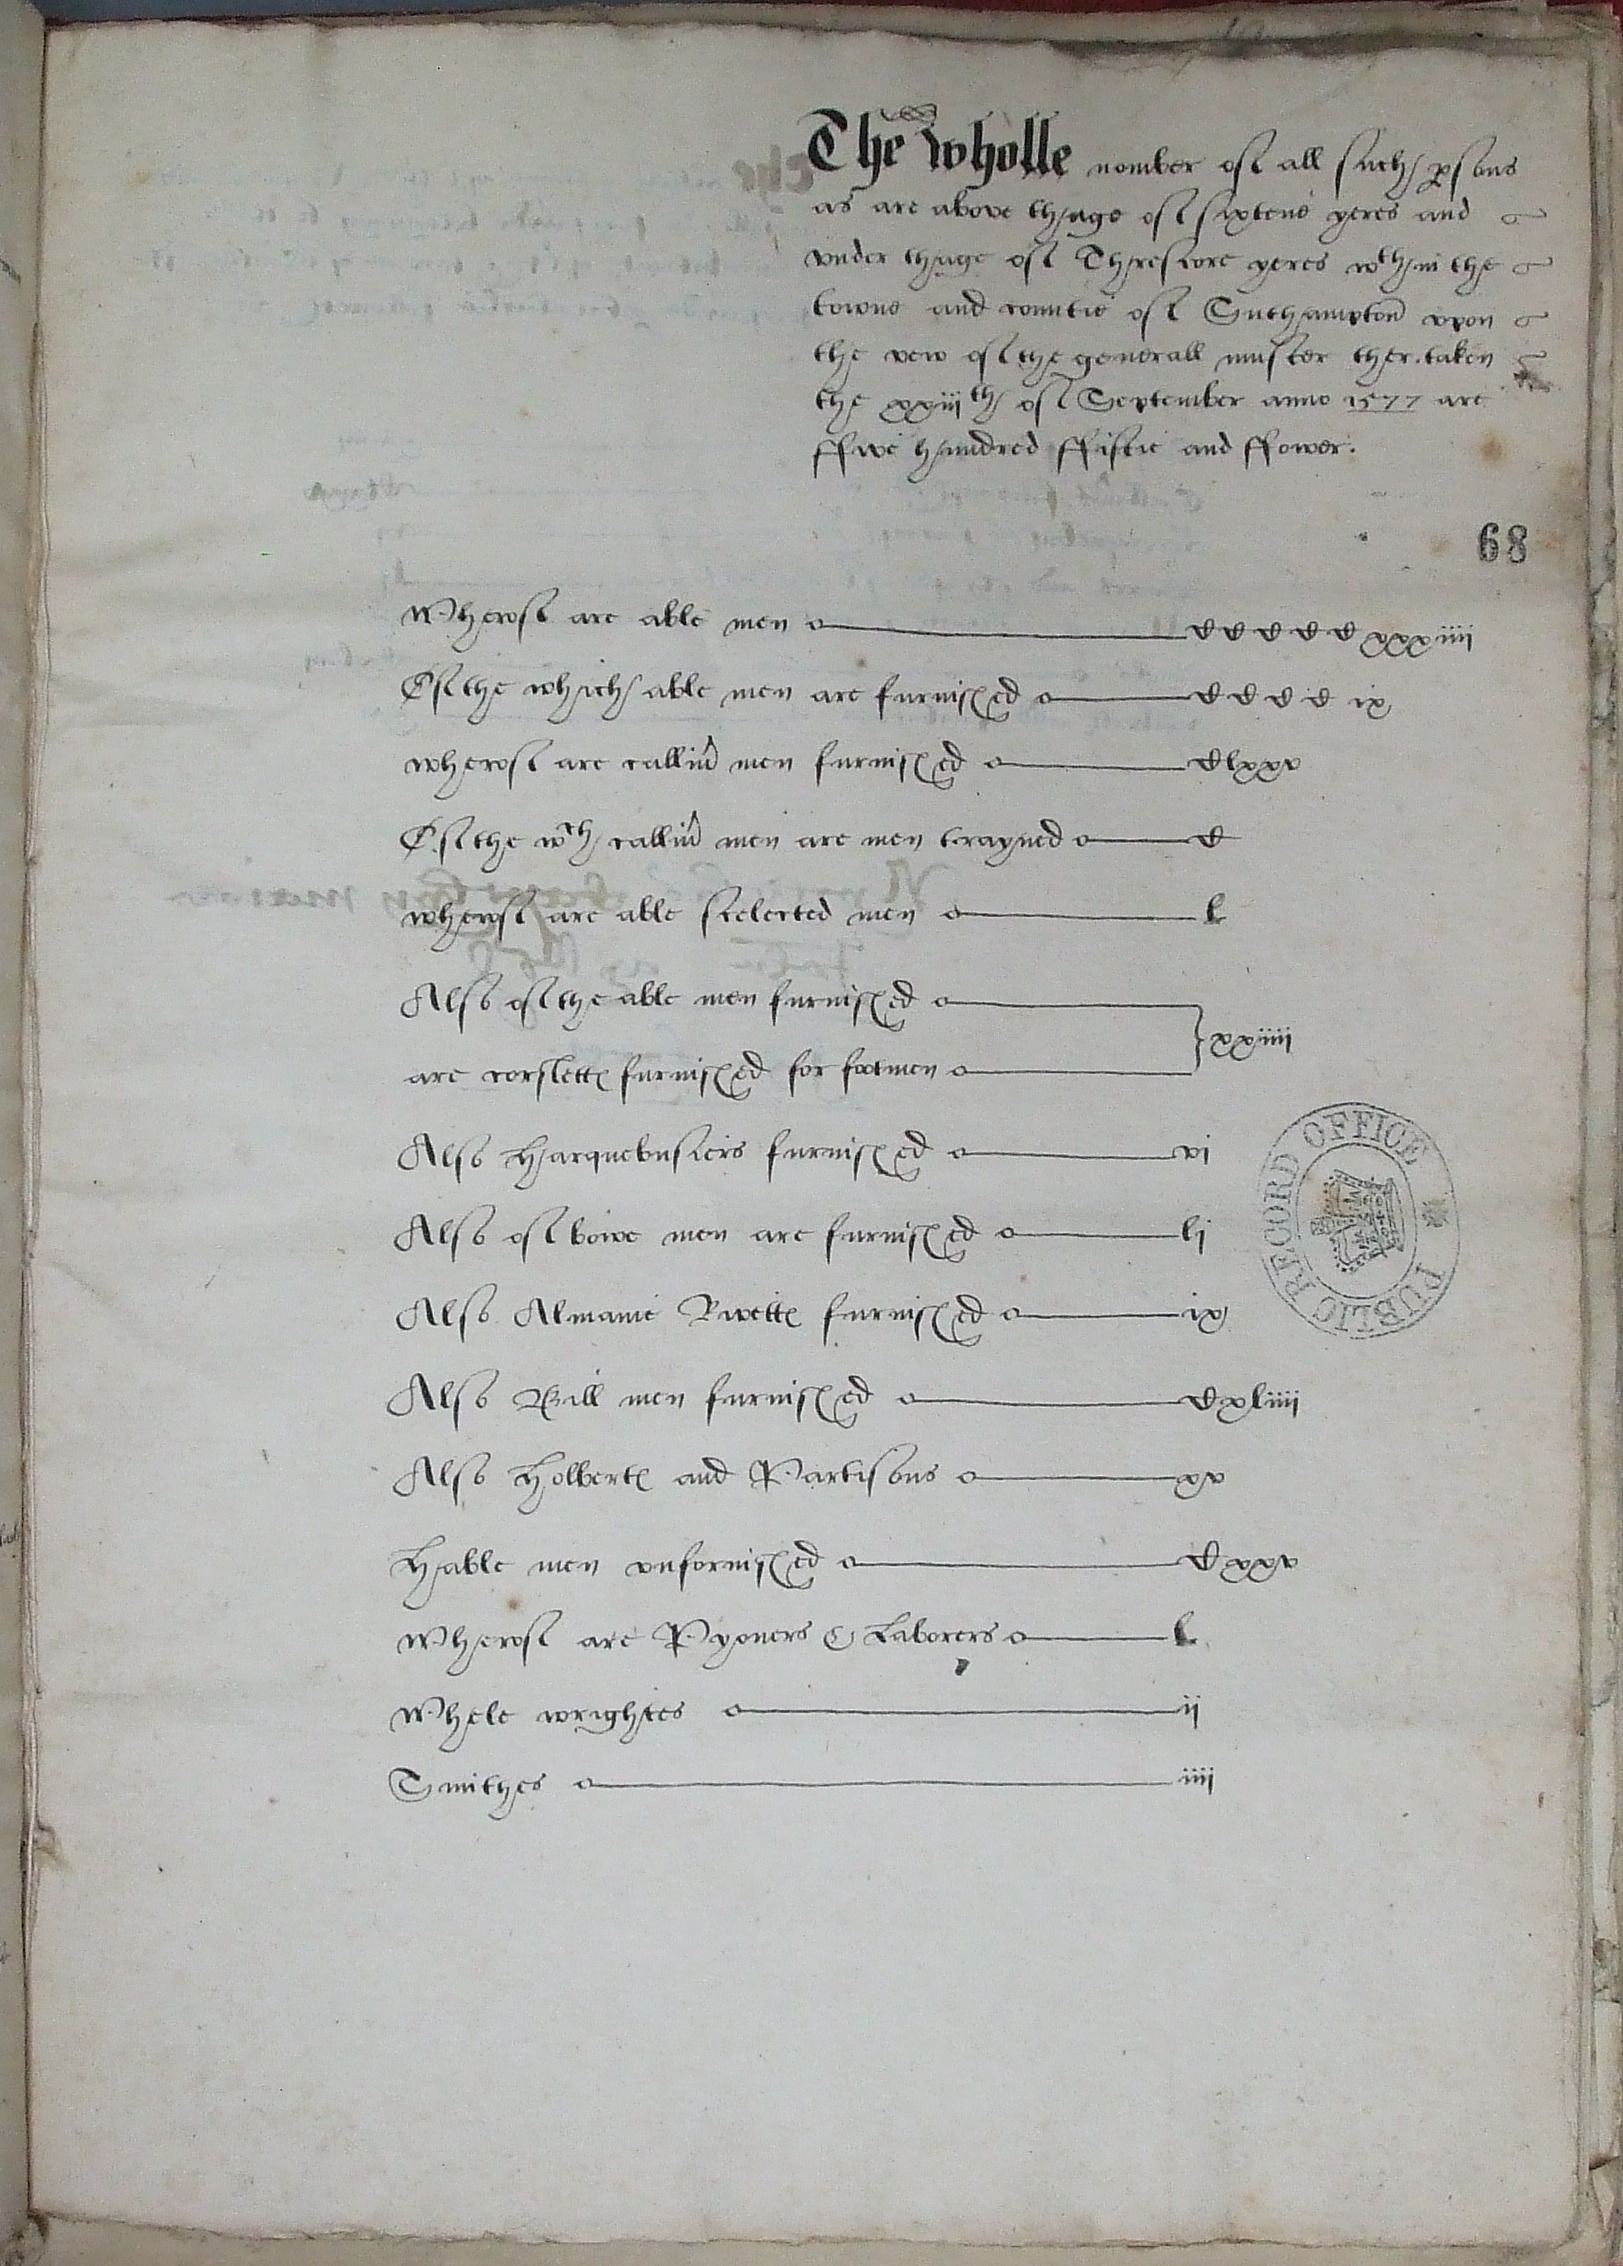 The wholle nomber of all such psons
as are above thage of sixtene yeres and
vnder thage of Threscore yeres wthin the
towne and countie of Suthampton vpon
the vew of the generall muster ther taken
the xxiiith of September anno 1577 are
ffive hundred ffiftie and ffower.
68
Wherof are able men CCCCCxxxiiii
Of the which able men are furnished CCCC ix
wherof are calliu men furnished Clxxv
Of the wch calliu men are men trayned C
wherof are able selected men L
Also of the able men furnished
are corslettes furnished for footmen xxiiii
Also Harquebusiers furnished vi
Also of bowe men are furnished lj
Also Almanie Rivettes furnished ix
Also Bill men furnished Cxliiii
Also Holbertes and Partisons xv
Hable men vnfornished Cxxv
Wherof are Pyoners & Laborers L
Whele wrightes ij
Smithes iiij
PUBLIC RECORD OFFICE